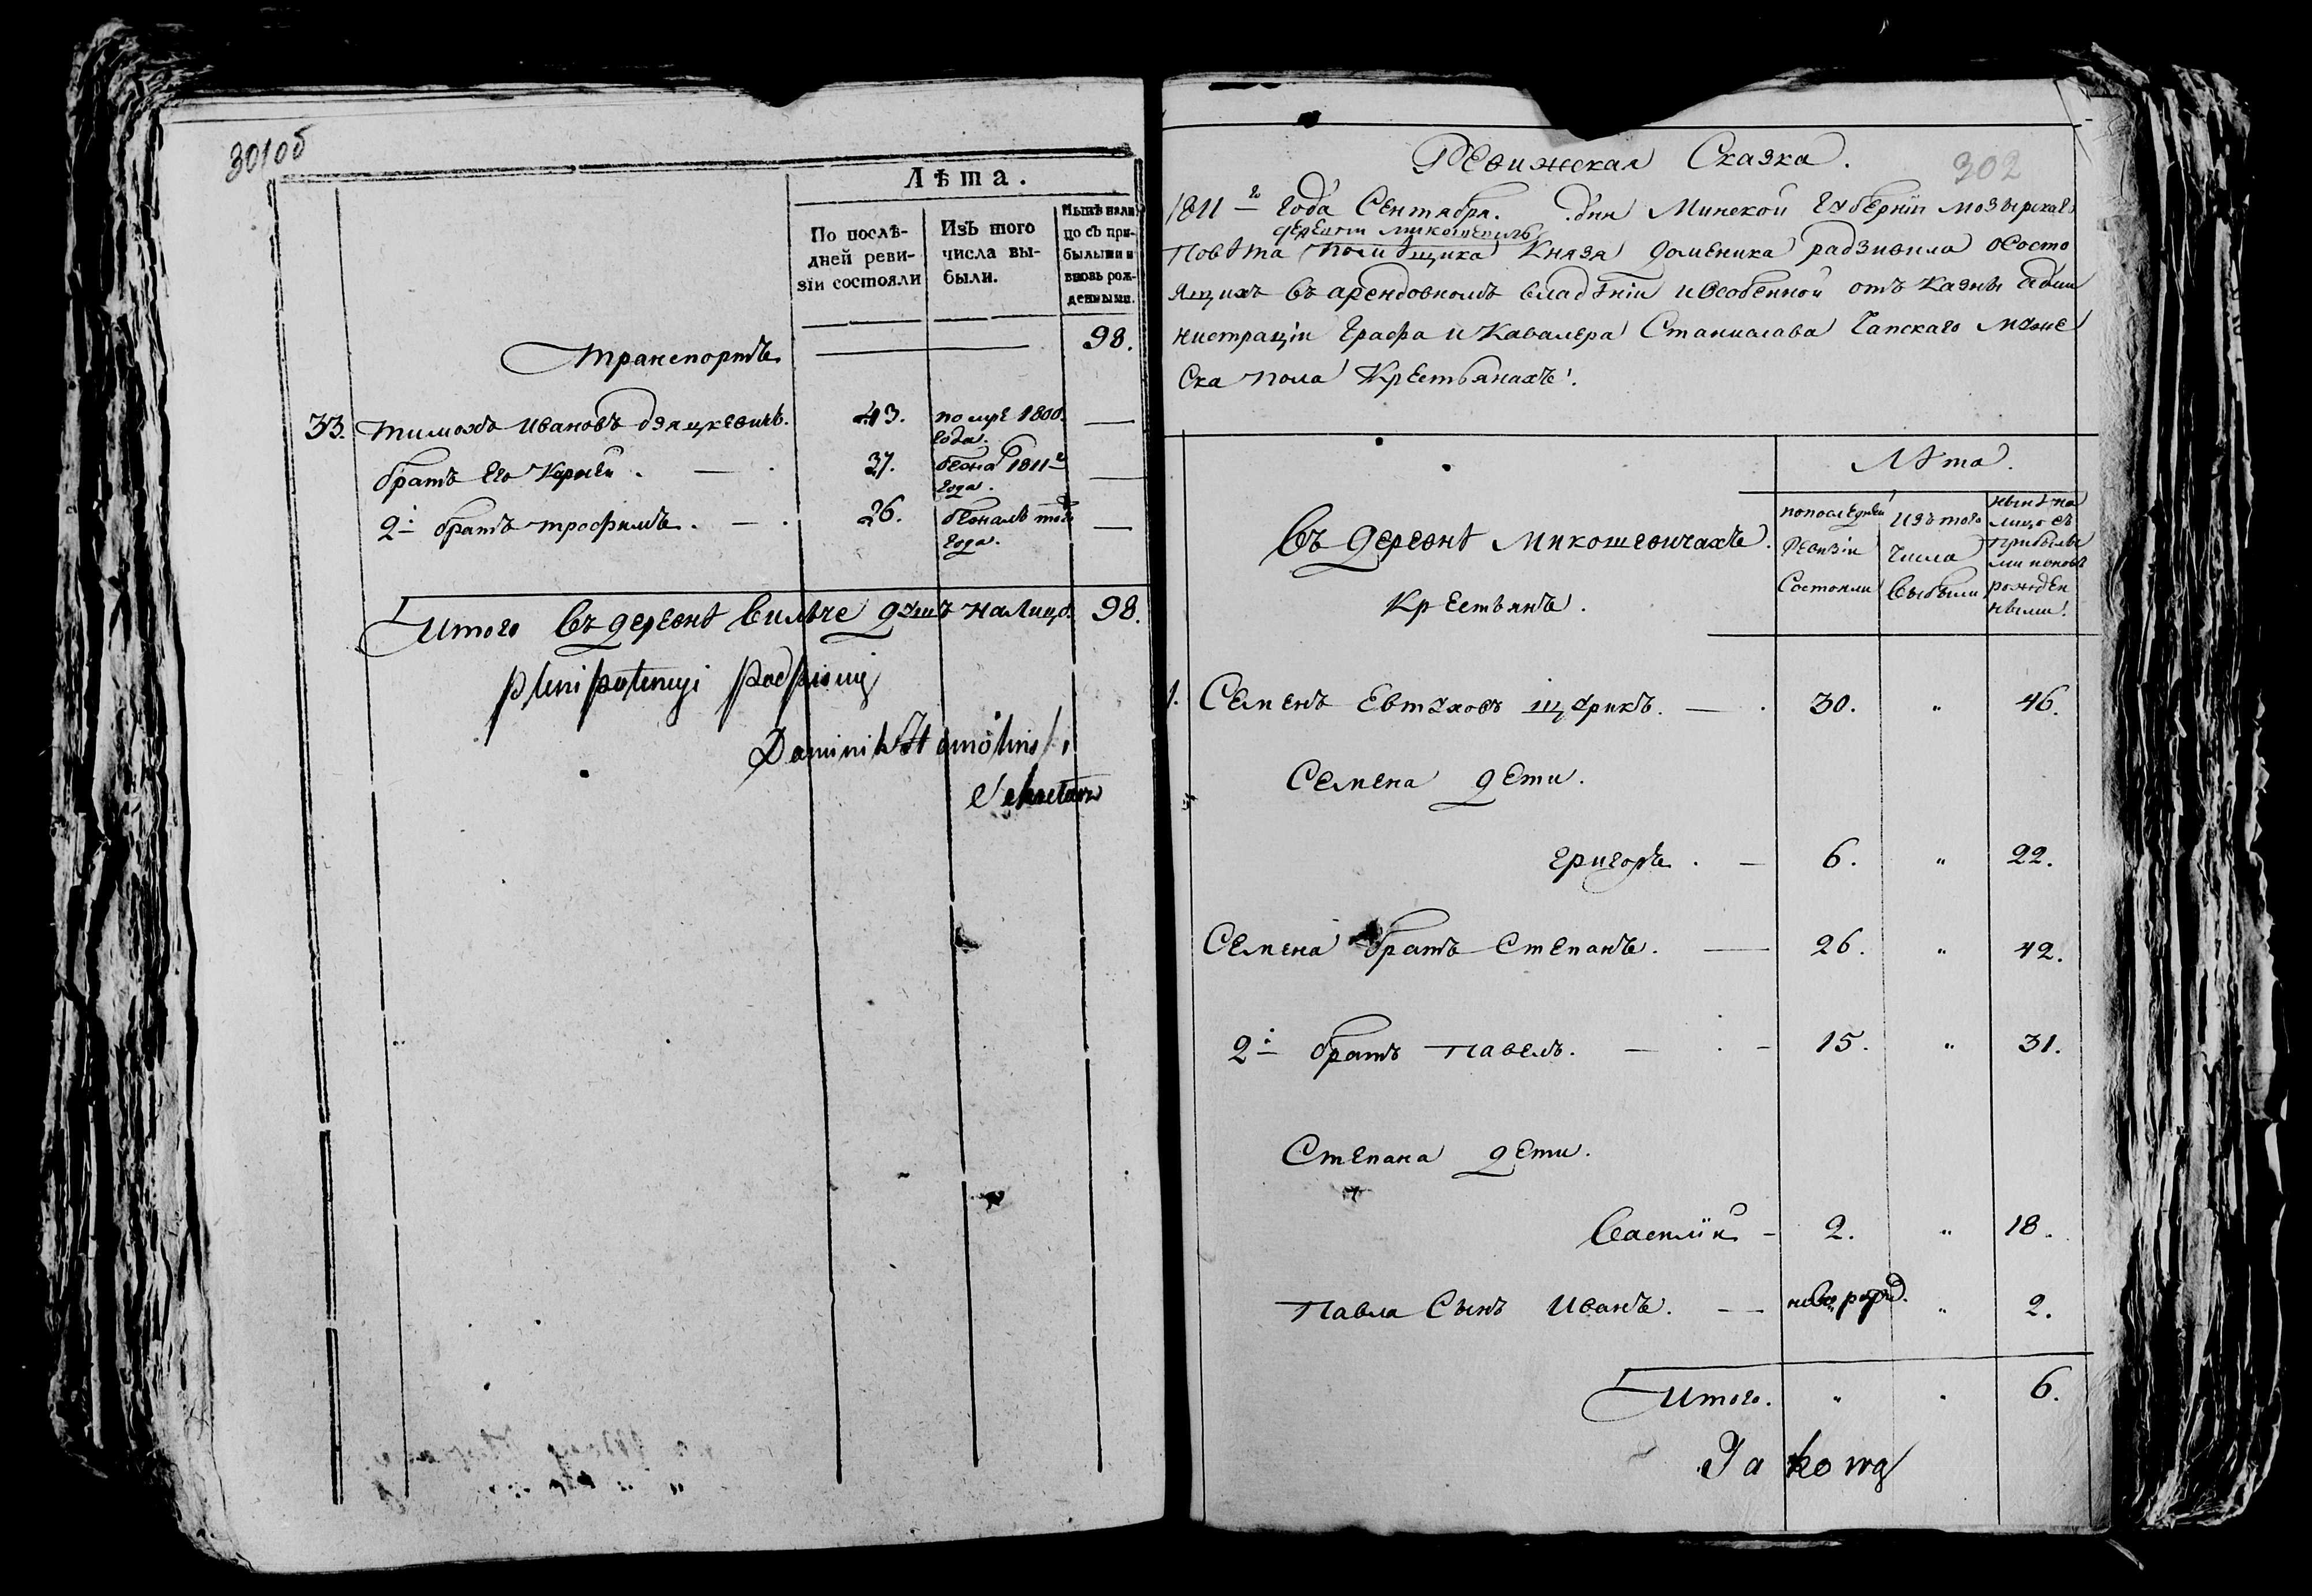 301об
Лѣта.
По послѣ-
дней реви-
зіи состояли
Изъ того
числа вы-
были.
Нынѣ нали
цо съ при-
былыми и
вновь рож-
денными.
Транспортъ 98.
33. Тимохъ Ивановъ Дзяцкевичь. 43. помре 1800. года.
братъ его 37. бежа 1811 года.
2й братъ Трофимъ. 26. бежалъ того года.
Итого Въ деревнѣ Вильче душъ налицо. 98.
plenipotencyi
Dominik
Sekretarz
302
Ревижская Сказка.
1811го года Сентября. дня Минской Губерніи Мозырскаго
деревни Микошевичь
повѣта помѣщика Князя Доменика Радзивила ососто
ящихъ въ арендовномъ владѣніи и особенной отъ казны адми
нистраціи Графа и Кавалера Станислава Чапскаго мужс
ска пола Крестьянахъ.
Лѣта.
Въ деревнѣ Микошевичахъ.
Крестьянъ.
попоследней
Ревизіи
Состояли
Изъ того
Числа
Выбыли
нынѣ на
лицо съ
прибылы
ми и новъ
рожден
ными.
1. Семенъ Евтуховъ Щурикъ. 30. „ 46.
Семена дети.
Григоръ. 6. „ 22.
Семена братъ Степанъ. 26. „ 42.
2й братъ Павелъ. 15. „ 31.
Степана дети.
Василій 2. „ 18.
Павла Сынъ Иванъ. ново рожд. „ 2.
Итого. „ „ 6.
Ja kowy